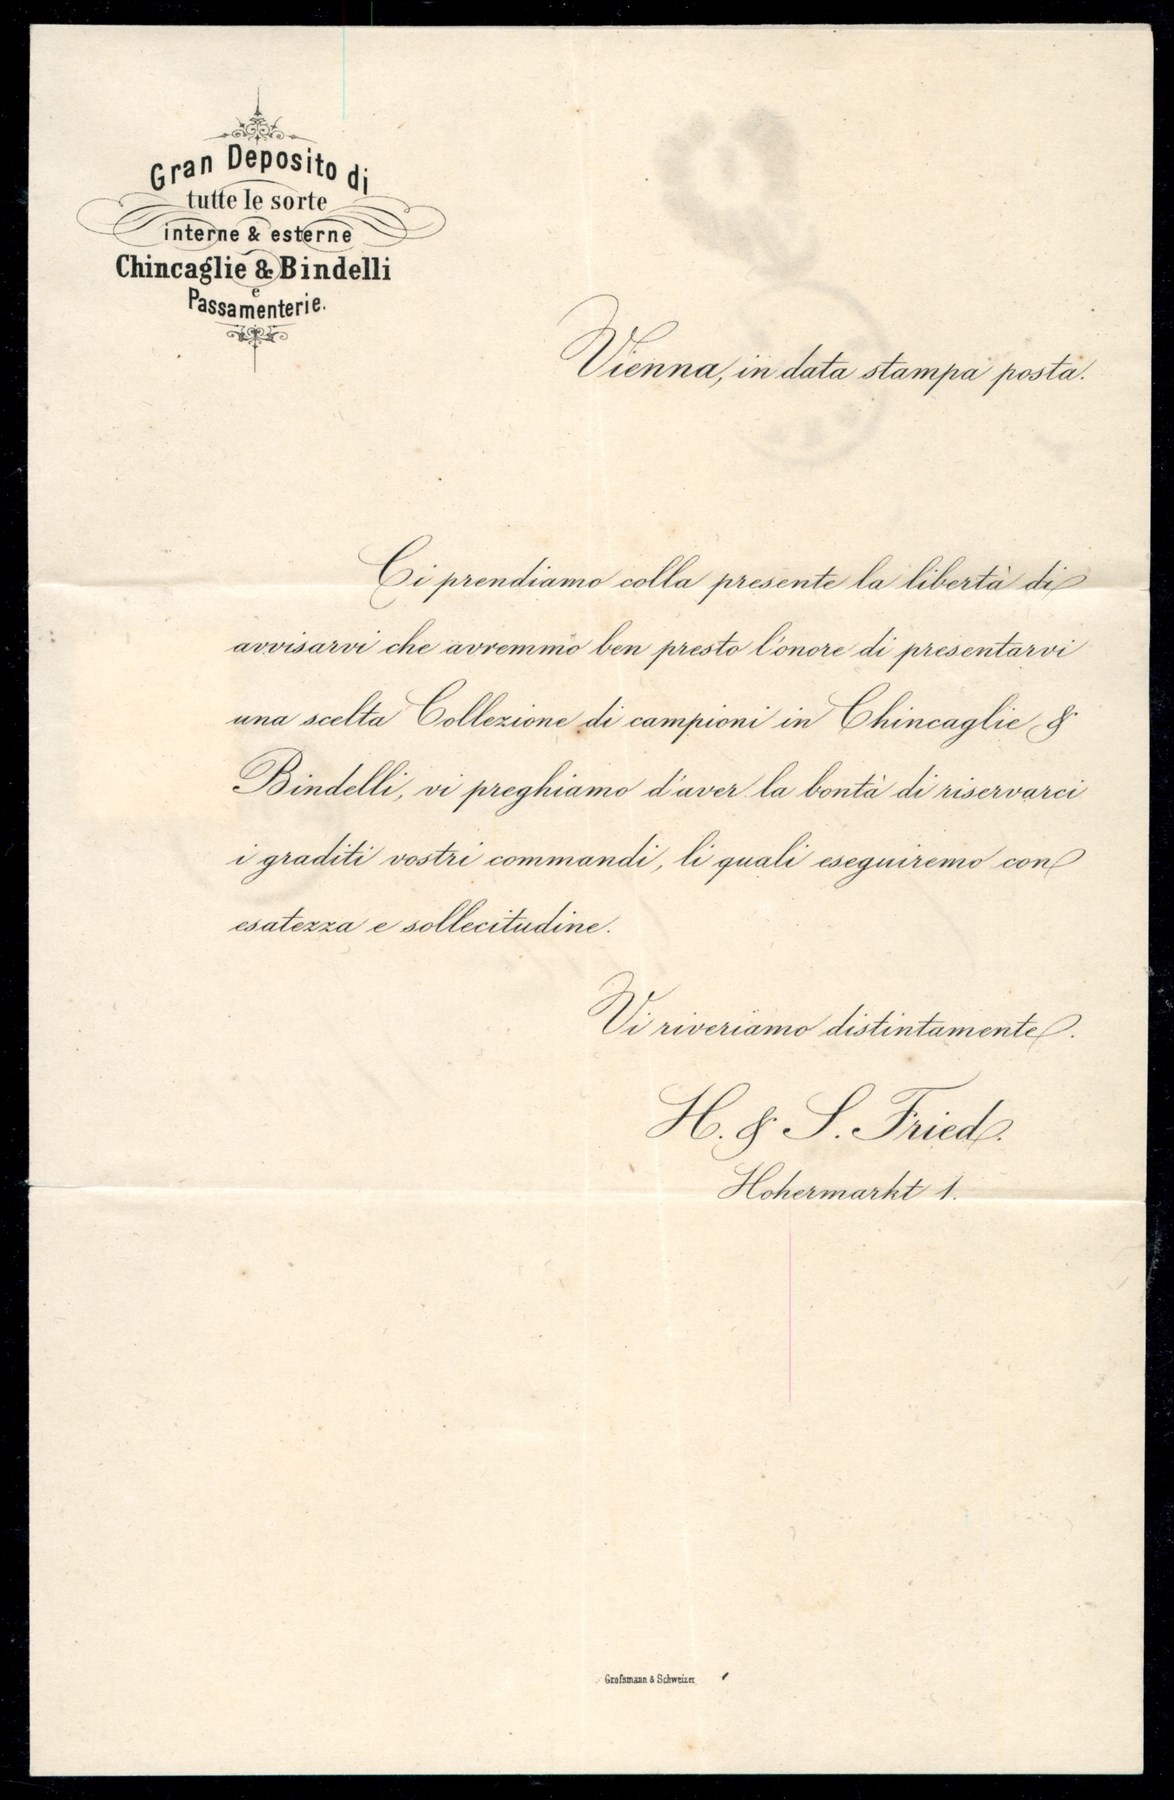 Gran Deposito di
tutte le sorte
interne & esterne
Chincaglie & Bindelli
e
Passamenterie.
Vienna, in data stampa posta.
Ci prendiamo colla presente la libertà di
avvisarvi che avremmo ben presto l'onore di presentarvi
una scelta Collezione di campioni in Chincaglie &
Bindelli, vi preghiamo d'aver la bontà di riservarci
i graditi vostri commandi, li quali eseguiremo con
esatezza e sollecitudine.
Vi riveriamo distintamente.
H. & S. Fried.
Hohermarkt 1.
Groſsmann & Schweizer